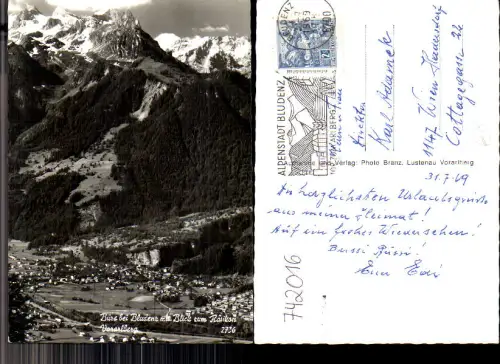 Bürs bei Bludenz mit Blick zum Rätikon
Vorarlberg 2736
BLUDENZ
ALPENSTADT BLUDENZ
VORARLBERG
Karl Adamek
1147 Wien
Cottagegasse 22
Verlag: Photo Branz, Lustenau Vorarlberg
31.7.69
Die herzlichsten Urlaubsgrüsse
aus meiner Heimat!
Auf ein frohes Wiedersehen!
Bussi Bussi!
Euer Edi
742016